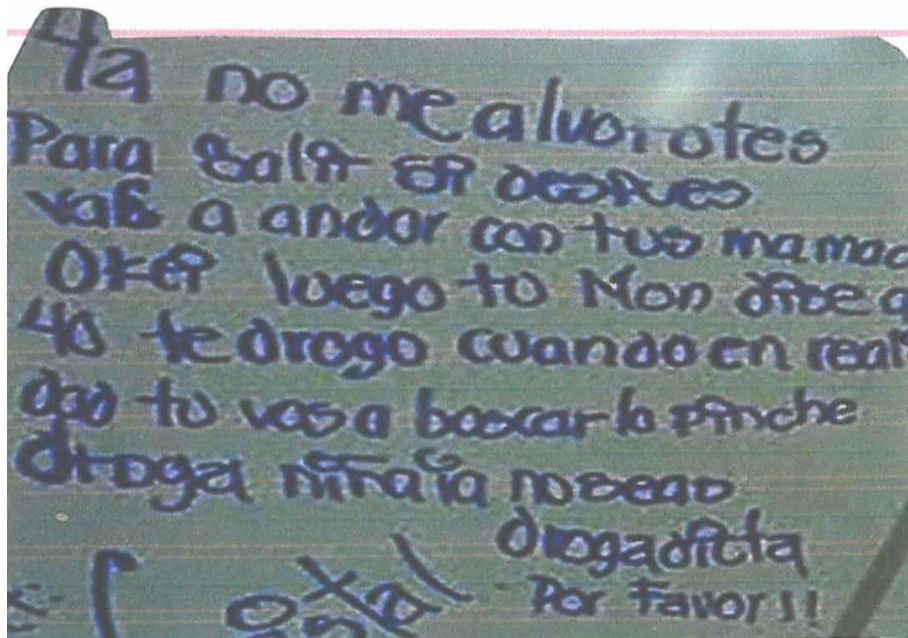 Ya no me alvorotes
Para salir si despues
vas a andar con tus mamad
Okei luego tu Mon dice q
Yo te drogo cuando en reali
dad tu vas a buscar la pinche
droga niña ia no seas
drogadicta
Por Favor!!